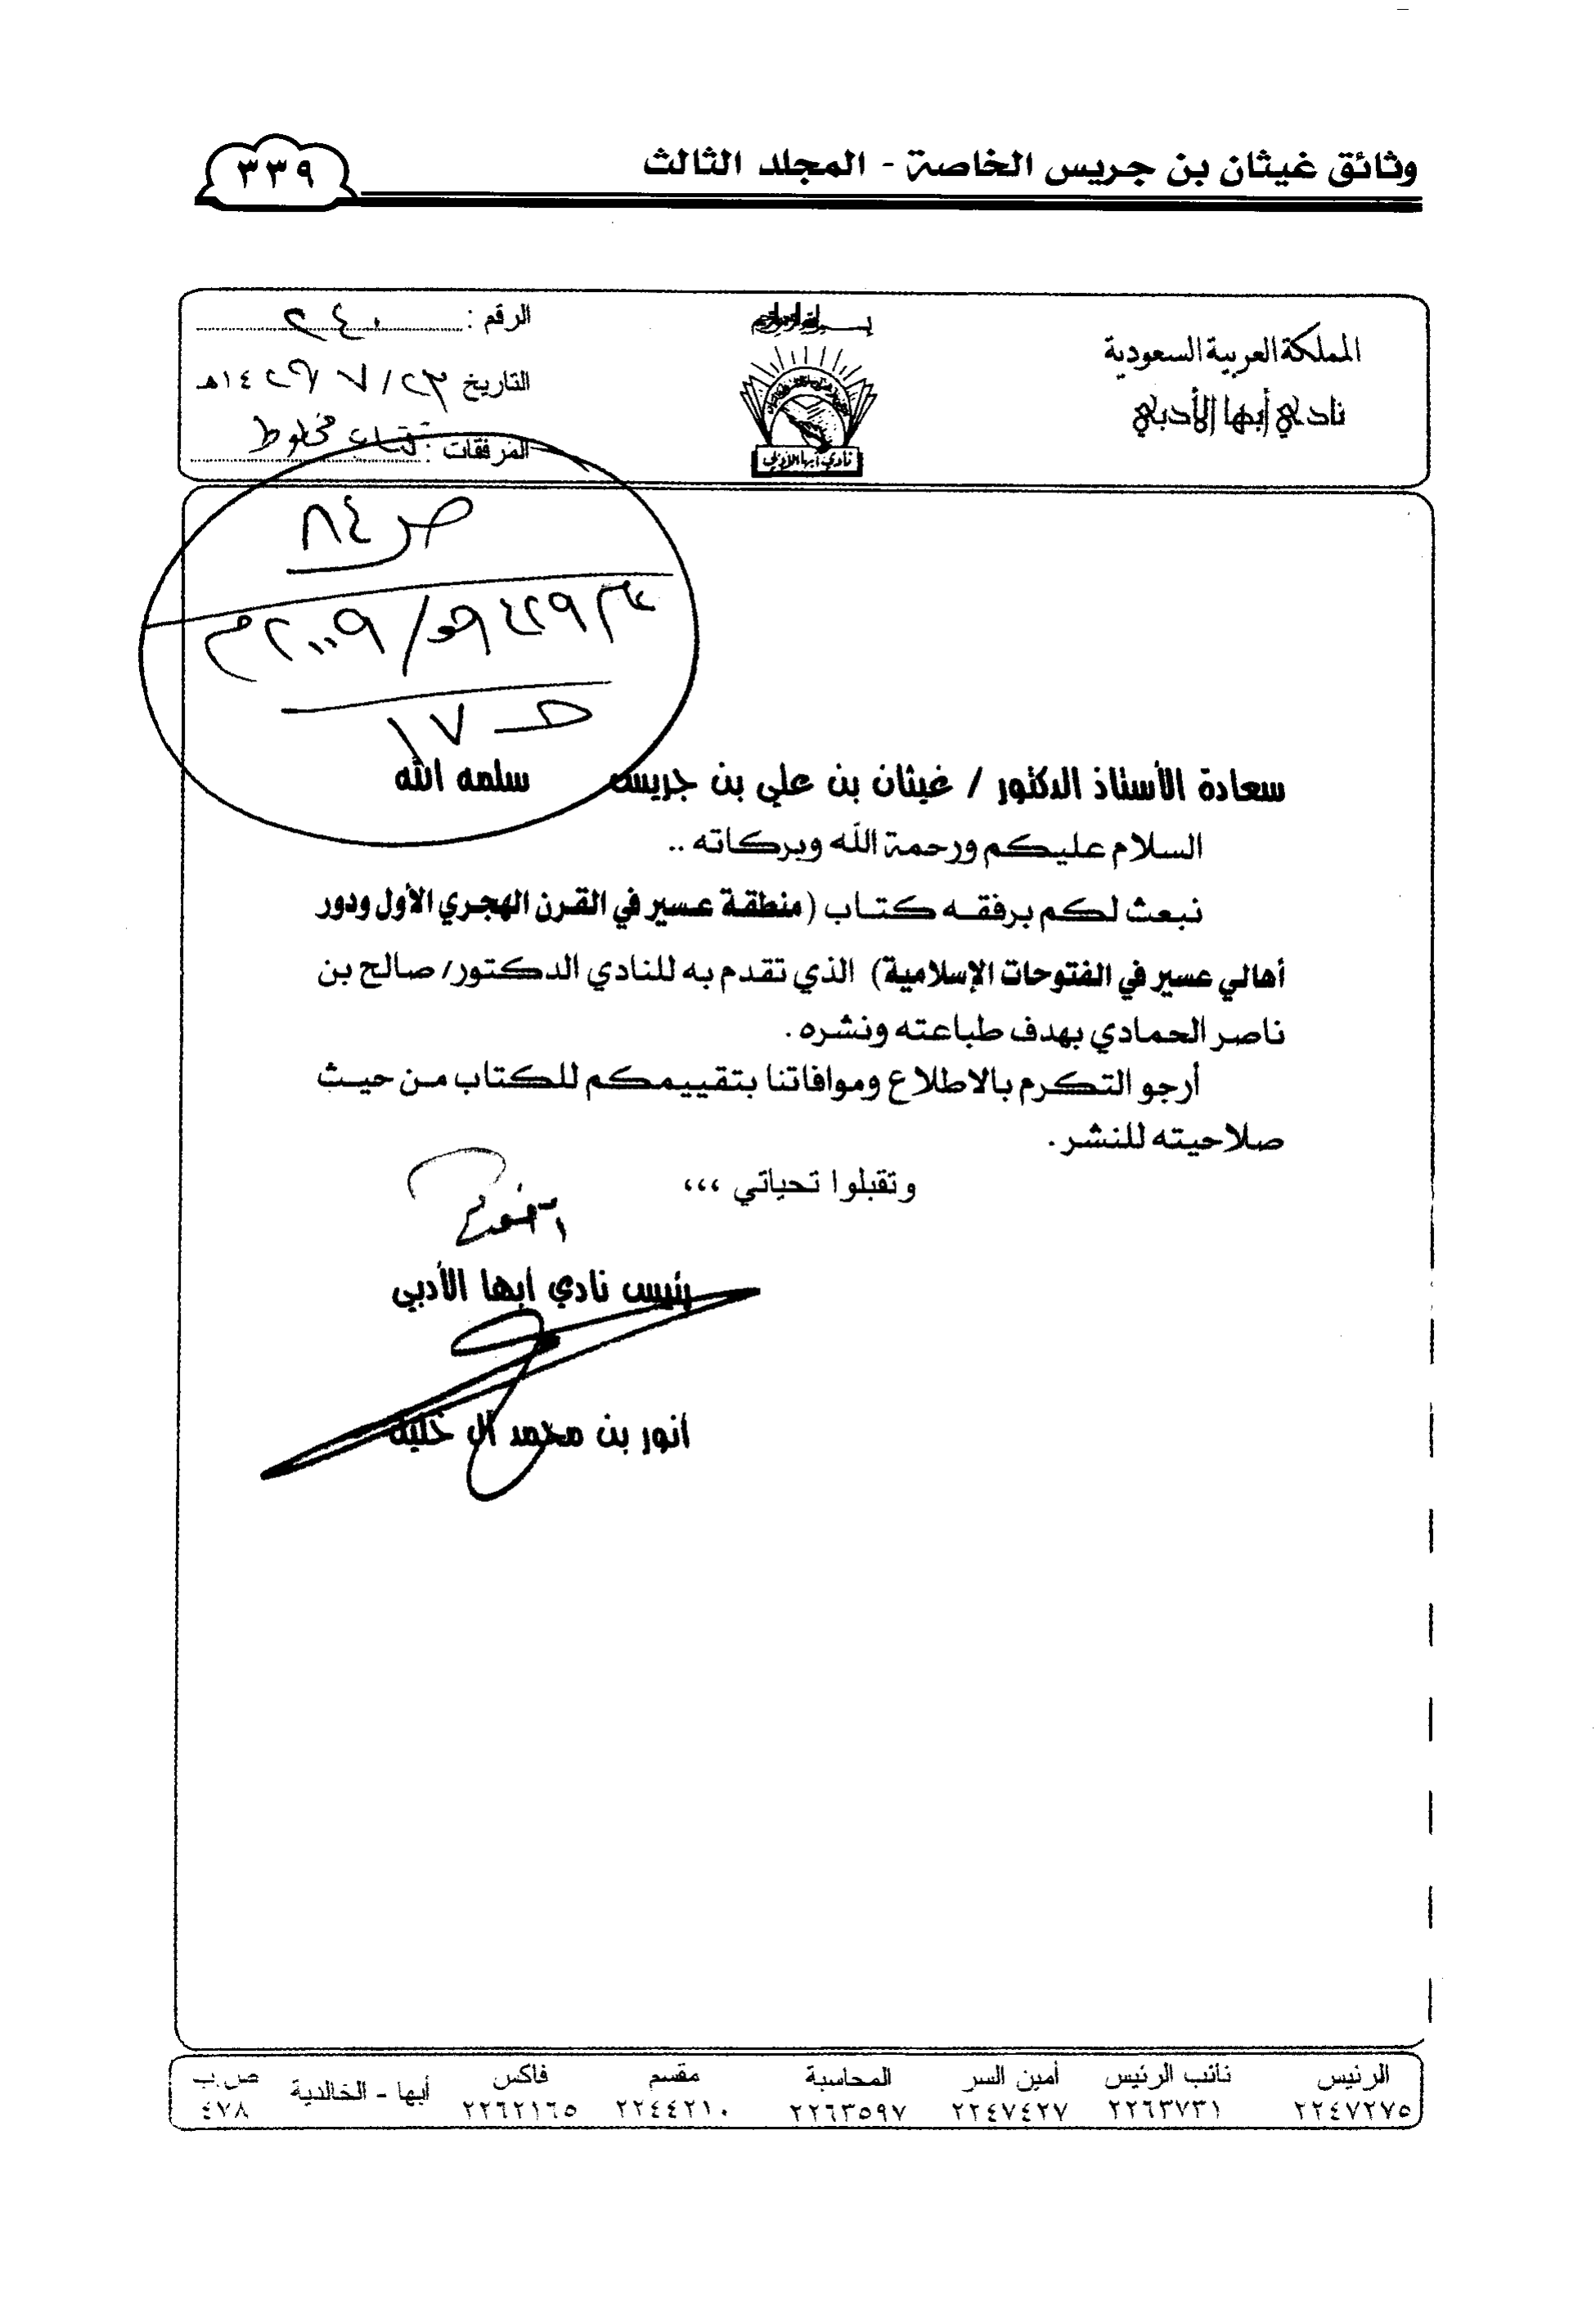 وثائق غيثان بن جريس الخاصة - المجلد الثالث
٣٣٩
المملكة العربية السعودية
نادي أبها الأدبي
نادي أبها الأدبي
الرقم : ٢٤٠
التاريخ ٢٣/ ٧ / ١٤٢٦هـ
المرفقات : كتاب مخطوط
ص ٨٤
١٤٢٩هـ / ٢٠٠٩م
١٧
سعادة الأستاذ الدكتور / غيثان بن علي بن جريس سلمه الله
السلام عليكم ورحمة الله وبركاته ..
نبعث لكم برفقه كتاب (منطقة عسير في القرن الهجري الأول ودور
أهالي عسير في الفتوحات الإسلامية) الذي تقدم به للنادي الدكتور/ صالح بن
ناصر الحمادي بهدف طباعته ونشره .
أرجو التكرم بالاطلاع وموافاتنا بتقييمكم للكتاب من حيث
صلاحيته للنشر .
وتقبلوا تحياتي ،،،
رئيس نادي أبها الأدبي
أنور بن محمد آل خليل
الرئيس نائب الرئيس أمين السر المحاسبة مقسم فاكس أبها - الخالدية ص.ب
٢٢٤٧٢٧٥ ٢٢٦٣٧٣١ ٢٢٤٧٤٢٧ ٢٢٦٣٥٩٧ ٢٢٤٤٢١٠ ٢٢٦٢١٦٥ ٤٧٨